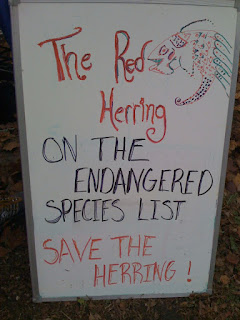 The Red
Herring
ON THE
ENDANGERED
SPECIES LIST
SAVE THE
HERRING!